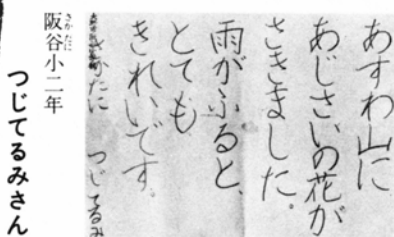 あすわ山に
あじさいの花が
さきました。
雨がふると、
とても
きれいです。
さかたに つじてるみ
阪谷小二年
さかたに
つじてるみさん